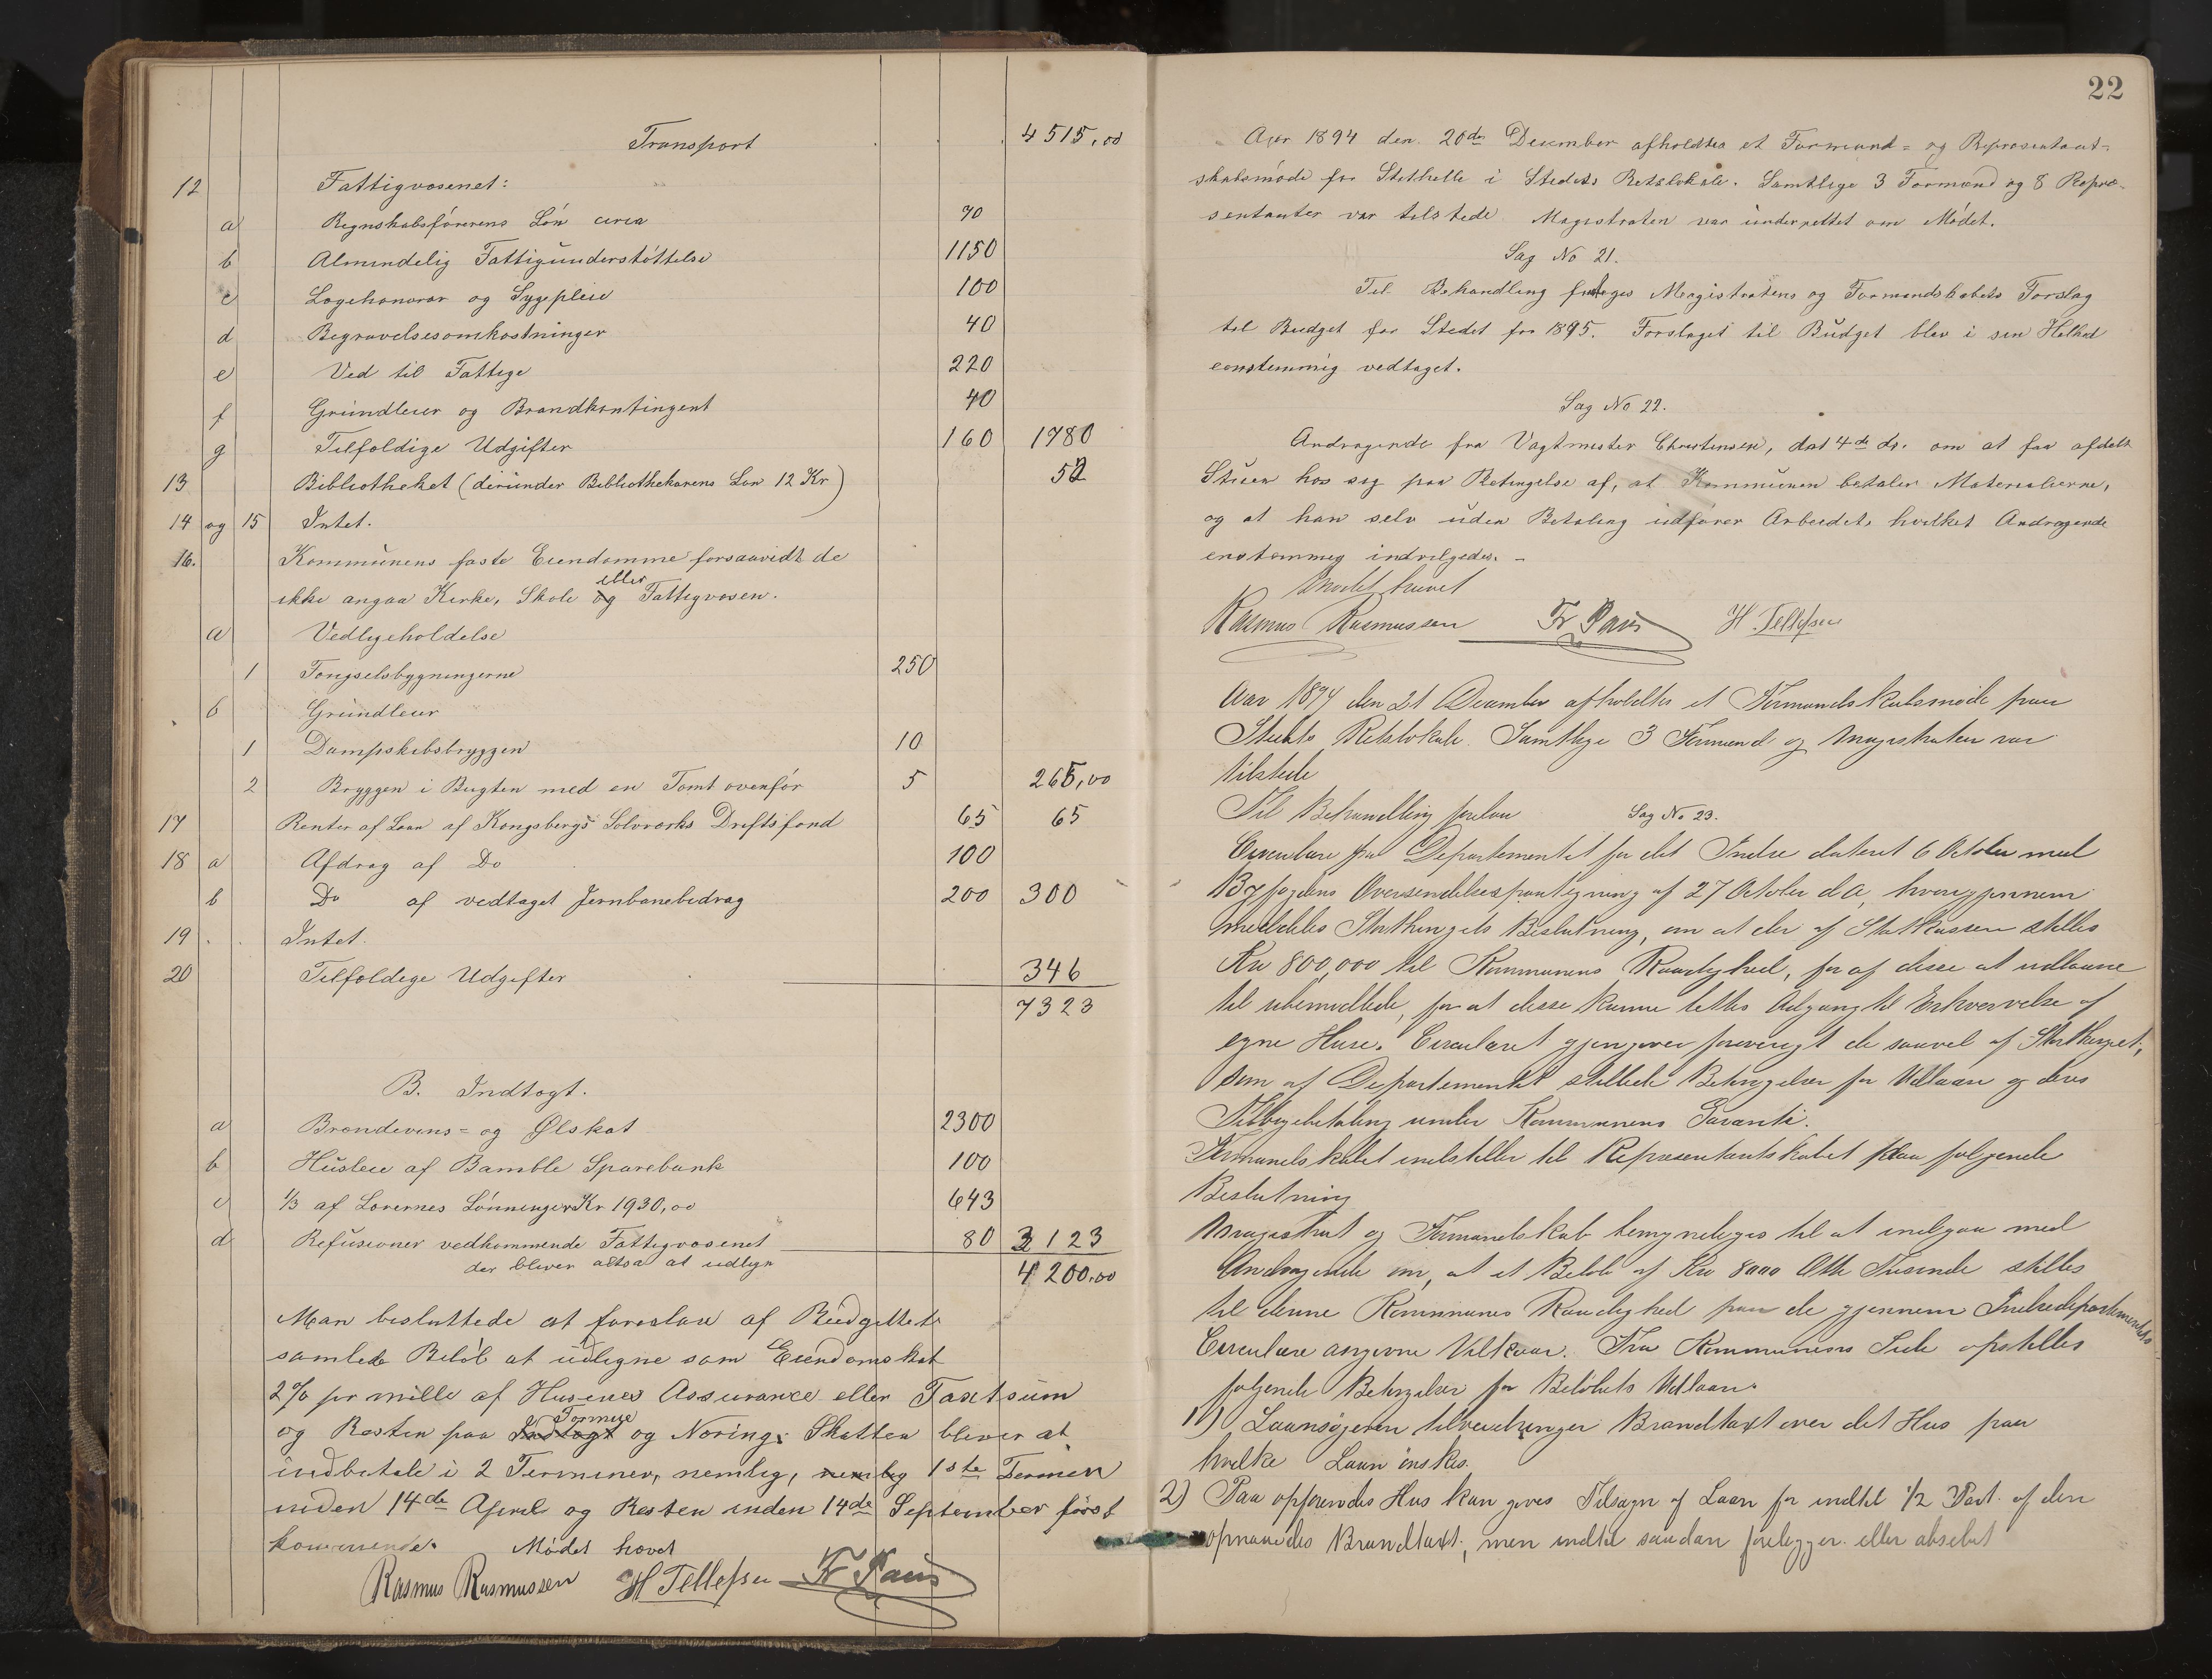 Transport 4515,00
12 Fattigvæsenet:
a Regnskabsførerens Løn circa 70
b Almindelig Fattigunderstøttelse 1150
c Lægehonorar og Sygepleie 100
d Begravelsesomkostninger 40
e Ved til Fattige 220
f Grundleier og Brandkontingent 40
g Tilfældige Udgifter 160 1780
13 Bibliotheket (derunder Bibliothekarens Løn 12 Kr) 52
14 og 15 Intet.
16. Kommunens faste Eiendomme forsaavidt de
ikke angaa Kirke, Skole og eller Fattigvæsen.
a Vedligeholdelse
1 Fængselsbygningerne 250
b Grundleier
1 Dampskibsbryggen 10
2 Bryggen i Bugten med en Tomt ovenfor 5 265,00
17 Renter af Laan af Kongsbergs Sølvværks Driftsfond 65 65
18 a Afdrag af Do 100
b Do af vedtaget Jernbanebidrag 200 300
19 Intet.
20 Tilfældige Udgifter 346
7323
B. Indtægt.
a Brændevins- og Ølskat 2300
b Husleie af Bamble Sparebank 100
c 1/3 af Lærernes Lønninger Kr 1930,00 643
d Refusioner vedkommende Fattigvæsenet 80 3123
der bliver altsaa at udlign 4200,00
Man besluttede at foreslaa af Budgettets
samlede Beløb at udligne som Eiendomsskat
2% pr mille af Husenes Assurance eller Taxtsum
og Resten paa Indtægt Formue og Næring. Skatten bliver at
indbetale i 2 Terminer, nemlig, nemlig 1ste Termin
inden 14de April og Resten inden 14de September først
kommende. Mødet hævet
Rasmus Rasmussen H Tellefsen Fr Paus
22
Aar 1894 den 20de December afholdtes et Formand- og Repræsentant-
skabsmøde for Stathelle i Stedets Retslokale. Samtlige 3 Formænd og 8 Repræ-
sentanter var tilstede. Magistraten var underrettet om Mødet.
Sag No 21.
Til Behandling foretages Magistratens og Formandskabets Forslag
til Budget for Stedet for 1895. Forslaget til Budget blev i sin Helhed
eenstemmig vedtaget.
Sag No 22.
Andragende fra Vagtmester Christensen, dat 4de ds. om at faa afdelt
Stuen hos sig paa Betingelse af, at Kommunen betaler Materialierne,
og at han selv uden Betaling udfører Arbeidet, hvilket Andragende
enstemmig indvilgedes. -
Mødet hævet
Rasmus Rasmussen Fr Paus H. Tellefsen
Aar 1894 den 21 December afholdtes et Formandskabsmøde paa
Stedets Retslokale. Samtlige 3 Formænd og Magistraten var
tilstede
Til Behandling forelaa Sag No 23.
Circulære fra Departementet for det Indre dateret 6 October med
Byfogdens Oversendelsespaategning af 27 October d A, hvorigjennem
meddeles Storthingets Beslutning, om at der af Statskassen stilles
Kr 800,000 til Kommunens Raadighed, for af disse at udlaane
til ubemidlede, for at disse kunne lettes Adgang til Erhvervelse af
egne Huse. Circulæret gjengiver forøvrigt de saavel af Storthinget,
som af Departementet stillede Betingelser for Udlaan og deres
Tilbagebetaling under Kommunens Garanti.
Formandskabet indstiller til Repræsentantskabet paa følgende
Beslutning
Magistrat og Formandskab bemyndiges til at indgaa med
Andragende om, at et Beløb af Kr 8000 Otte Tusinde stilles
til denne Kommunes Raadighed paa de gjennem Indredepartementets
Circulære angivne Vilkaar. Fra Kommunens Side opstilles
følgende Betingelser for Beløbets Udlaan.
1) Laansøgeren tilveiebringer Brandtaxt over det Hus paa
hvilke Laan ønskes.
2) Paa opførendes Hus kan gives Tilsagn af Laan for indtil 1/2 Part af den
opnaaedes Brandtaxt, men indtil saadan foreligger eller absolut